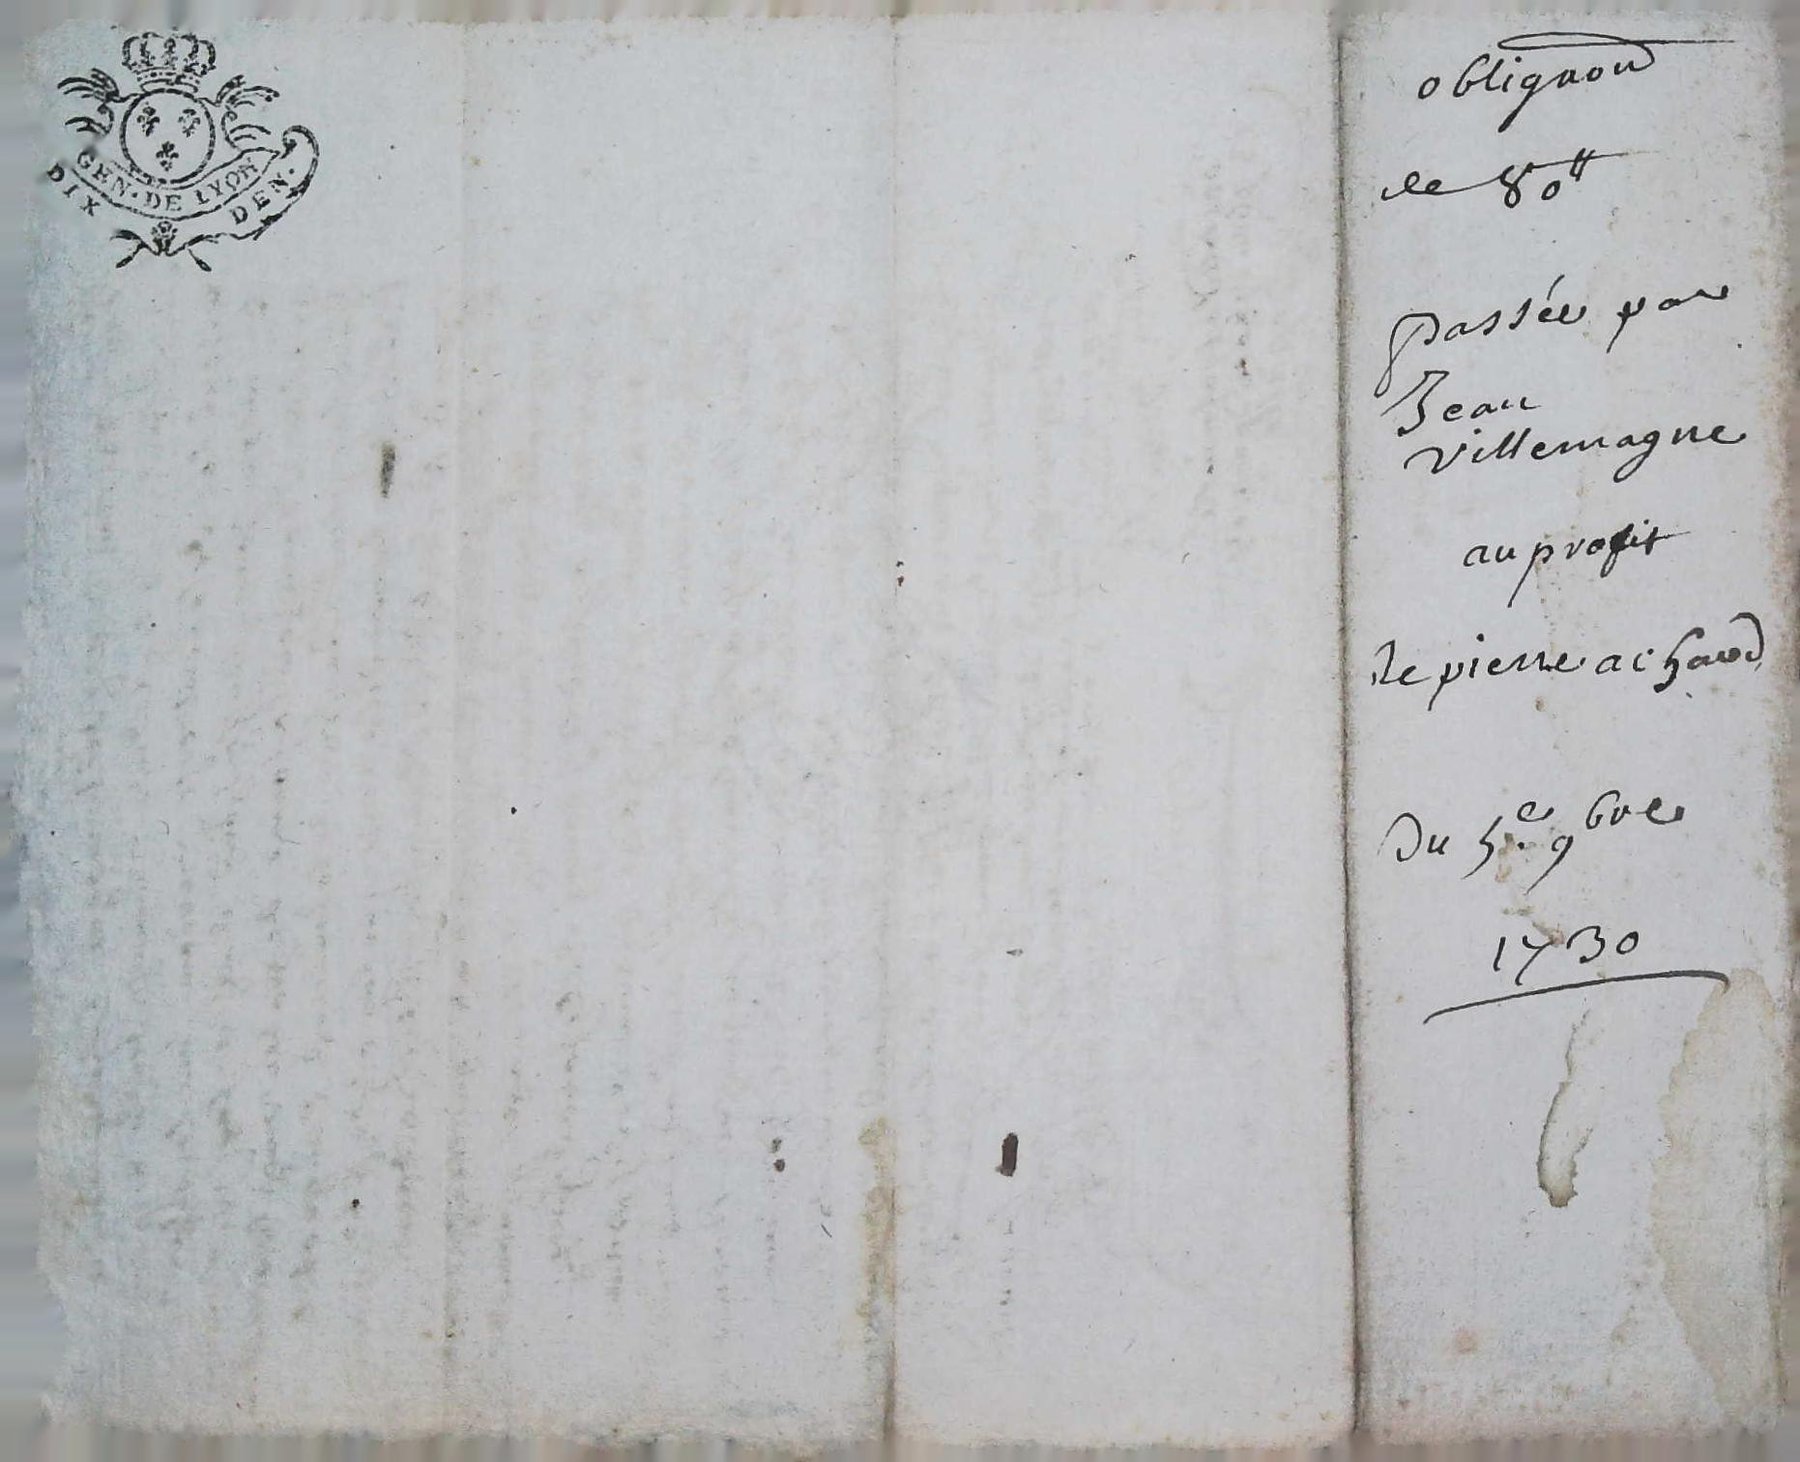 GEN. DE LYON
DIX DEN.
obligaon
de 80tt
passée par
Jean
villemagne
au profit
de pierre achard
Du 5e. 9bre
1730